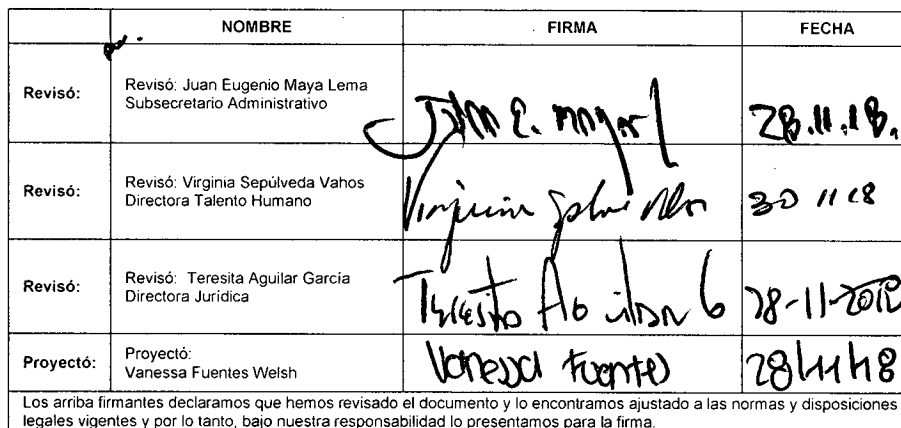 NOMBRE FIRMA FECHA
Revisó: Revisó: Juan Eugenio Maya Lema
Subsecretario Administrativo
Juan E. Maya L 28.11.18.
Revisó: Revisó: Virginia Sepúlveda Vahos
Directora Talento Humano
Virginia 30 11 18
Revisó: Revisó: Teresita Aguilar García
Directora Jurídica
Teresita Aguilar G 28-11-2018
Proyectó: Proyectó:
Vanessa Fuentes Welsh
Vanessa Fuentes 28/11/18
Los arriba firmantes declaramos que hemos revisado el documento y lo encontramos ajustado a las normas y disposiciones
legales vigentes y por lo tanto, bajo nuestra responsabilidad lo presentamos para la firma.